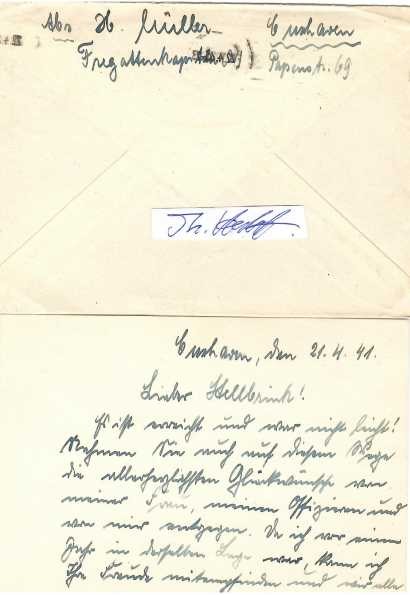 Abs H. Müller
Cuxhaven
Fregattenkapitän
Papenstr. 69
Cuxhaven, den 21.4.41.
Lieber Hellbrink!
Es ist erreicht und war nicht leicht!
Nehmen Sie auch auf diesem Wege
die allerherzlichsten Glückwünsche von
meiner Frau, meinen Offizieren und
von mir entgegen. Da ich vor einem
Jahr in derselben Lage war, kann ich
Ihre Freude mitempfinden und wir alle